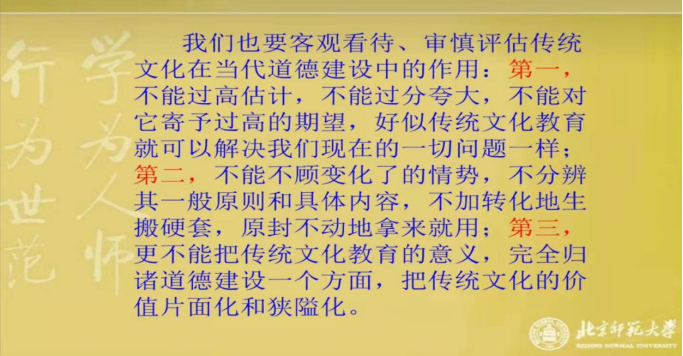 我们也要客观看待、审慎评估传统
文化在当代道德建设中的作用：第一，
不能过高估计，不能过分夸大，不能对
它寄予过高的期望，好似传统文化教育
就可以解决我们现在的一切问题一样；
第二，不能不顾变化了的情势，不分辨
其一般原则和具体内容，不加转化地生
搬硬套，原封不动地拿来就用；第三，
更不能把传统文化教育的意义，完全归
诸道德建设一个方面，把传统文化的价
值片面化和狭隘化。
学为人师
行为世范
北京师范大学
BEIJING NORMAL UNIVERSITY